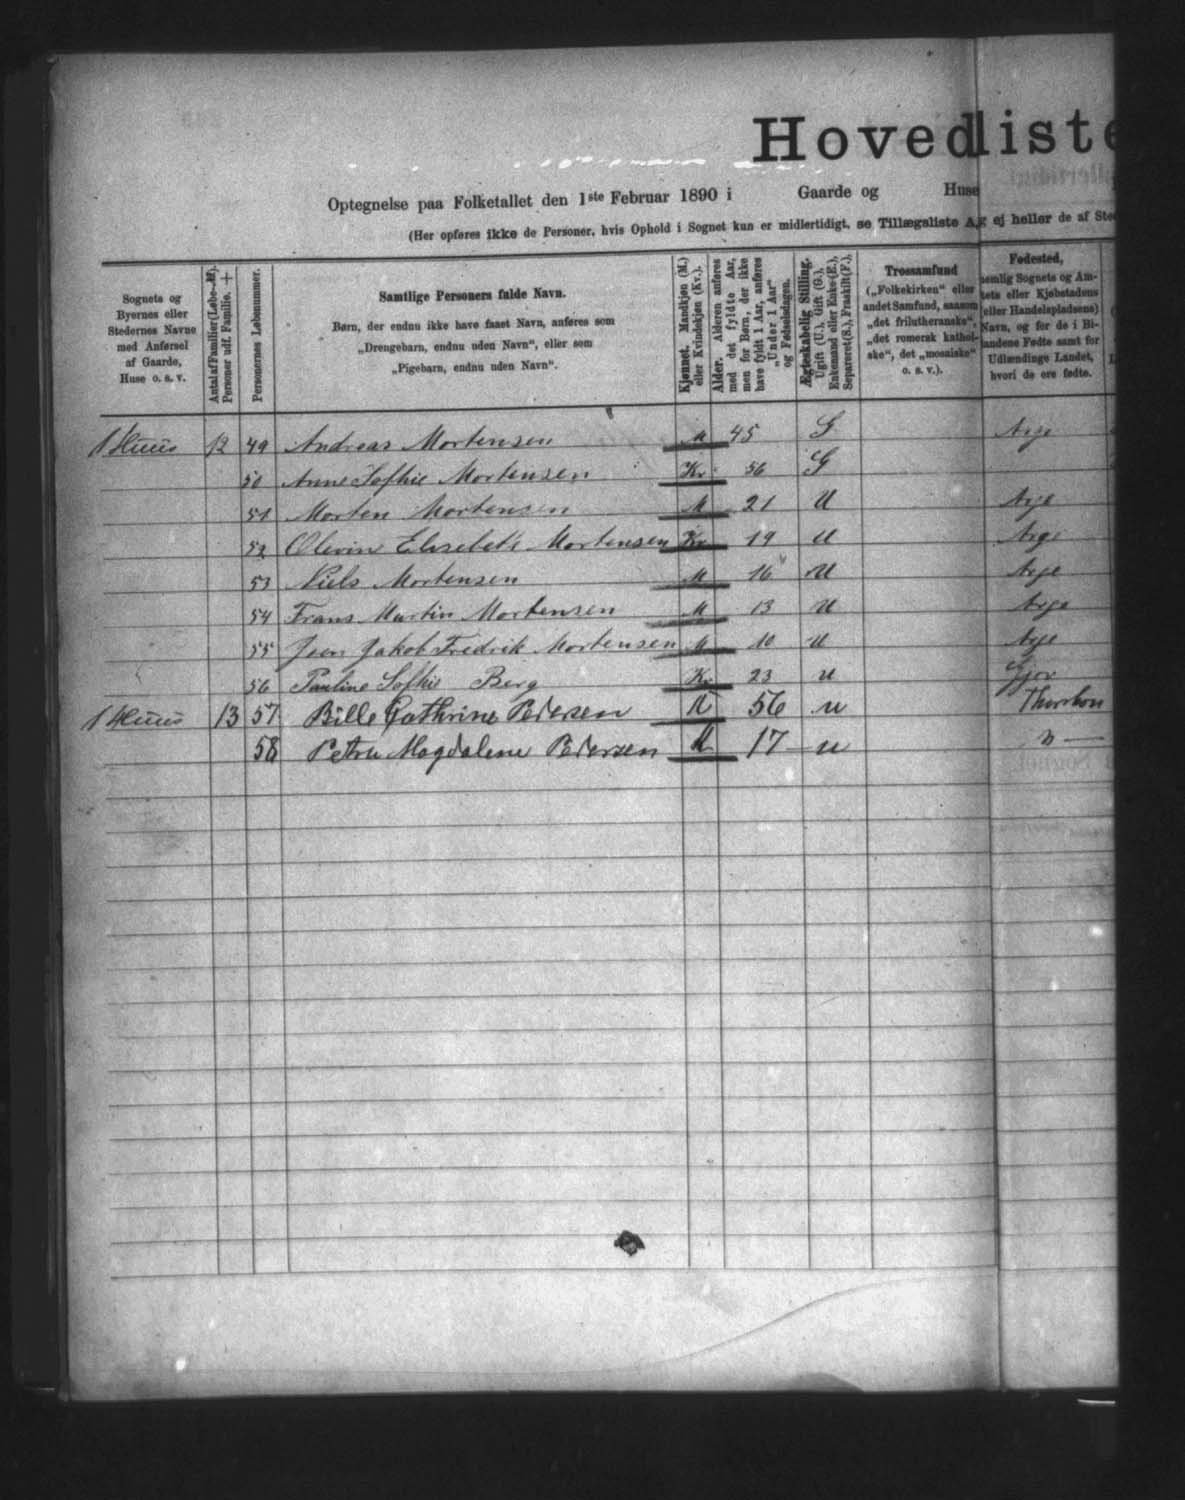 Hovedliste
Optegnelse paa Folketallet den 1ste Februar 1890 i Gaarde og Huse
(Her opføres ikke de Personer, hvis Ophold i Sognet kun er midlertidigt, se Tillægsliste A, ej heller de af
Sognets og Byernes eller Stedernes Navne med Anførsel af Gaarde, Huse o. s. v.
Antal af Familier (Løbe-№). Personer udf. Familie. +
Personernes Løbenummer.
Samtlige Personers fulde Navn.
Børn, der endnu ikke have faaet Navn, anføres som
„Drengebarn, endnu uden Navn“, eller som
„Pigebarn, endnu uden Navn“.
Kjønnet. Mandkjøn (M.) eller Kvindekjøn (Kv.).
Alder. Alderen anføres med det fyldte Aar, men for Børn, der ikke have fyldt 1 Aar, anføres „Under 1 Aar“ og Fødselsdagen.
Ægteskabelig Stilling. Ugift (U.), Gift (G.), Enkemand eller Enke (E.), Separeret (S.), Fraskilt (F.).
Trossamfund („Folkekirken“ eller andet Samfund, saasom „det frilutheranske“, „det romersk katholske“, det „mosaiske“ o. s. v.).
Fødested, nemlig Sognets og Amtets eller Kjøbstadens (eller Handelspladsens) Navn, og for de i Bilandene Fødte samt for Udlændinge Landet, hvori de ere fødte.
1 Huus 12 49 Andreas Mortensen M 45 G Arge
50 Anne Sofhie Mortensen Kv 56 G
51 Morten Mortensen M 21 U Arge
52 Olevine Elisebeth Mortensen Kv 19 U Arge
53 Niels Mortensen M 16 U Arge
54 Frans Martin Mortensen M 13 U Arge
55 Joen Jakob Fredrik Mortensen M 10 U Arge
56 Pauline Sofhie Berg Kv 23 U Gjov
1 Huus 13 57 Bille Cathrine Pedersen K 56 u Thorshon
58 Petra Magdalene Pedersen K 17 u " —